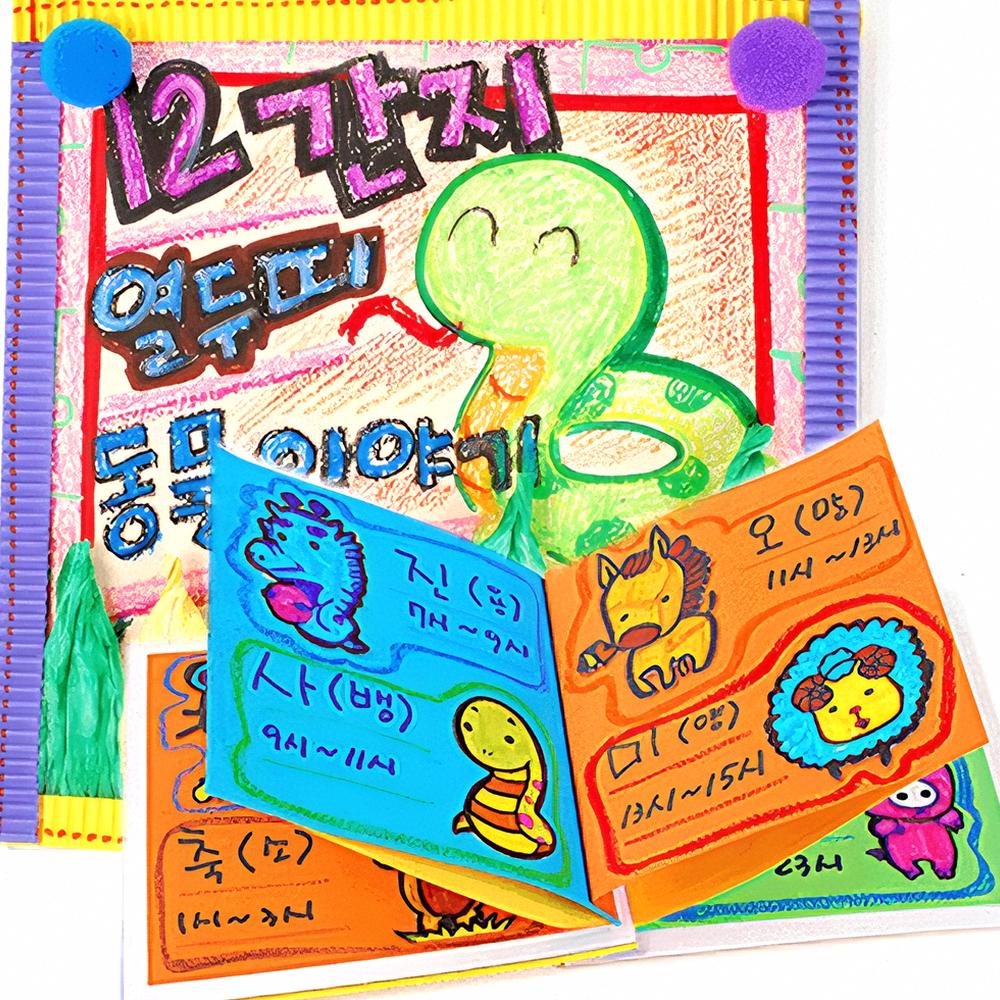 12 간지
열두띠
동물 이야기
진 (용)
7시~9시
사 (뱀)
9시~11시
오 (말)
11시~13시
미 (양)
13시~15시
축 (소)
1시~3시